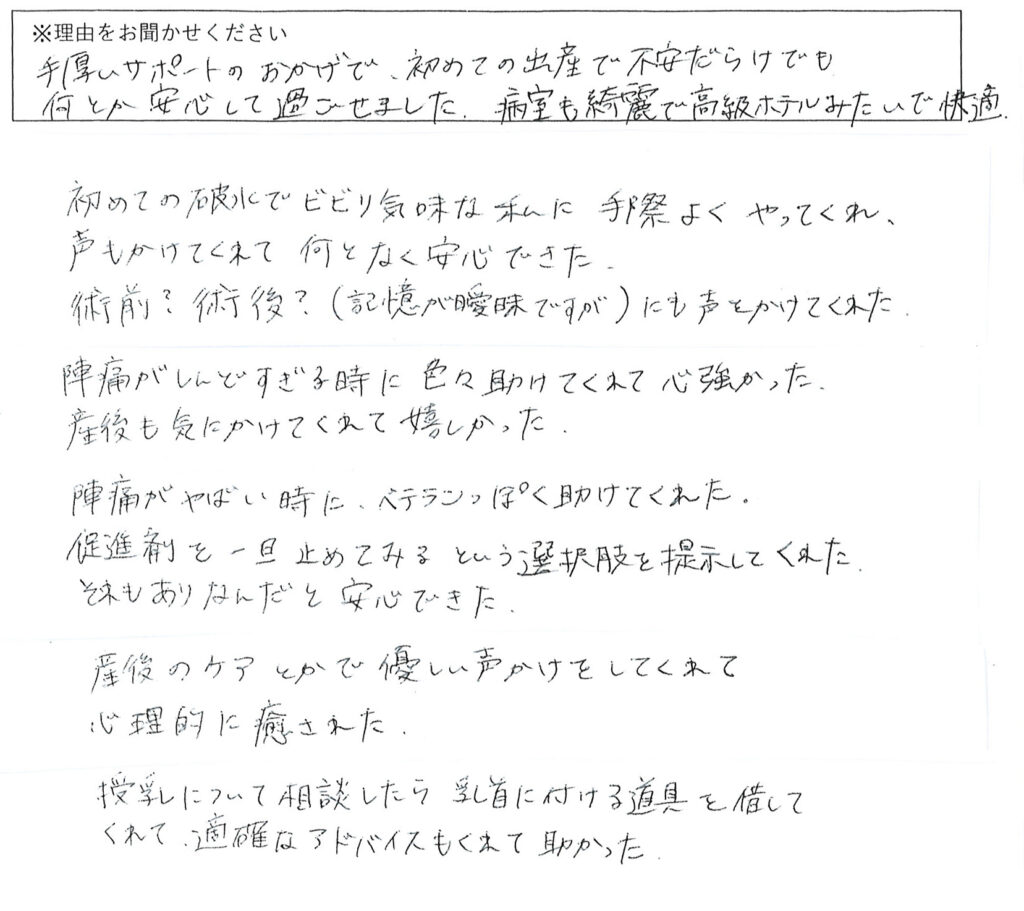 ※理由をお聞かせください
手厚いサポートのおかげで、初めての出産で不安だらけでも
何とか安心して過ごせました。病室も綺麗で高級ホテルみたいで快適。
初めての破水でビビり気味な私に手際よくやってくれ、
声もかけてくれて何となく安心できた。
術前？術後？(記憶が曖昧ですが)にも声をかけてくれた。
陣痛がしんどすぎる時に色々助けてくれて心強かった。
産後も気にかけてくれて嬉しかった。
陣痛がやばい時に、ベテランっぽく助けてくれた。
促進剤を一旦止めてみるという選択肢を提示してくれた。
それもありなんだと安心できた。
産後のケアとかで優しい声かけをしてくれて
心理的に癒された。
授乳について相談したら乳首に付ける道具を借して
くれて、適確なアドバイスもくれて助かった。